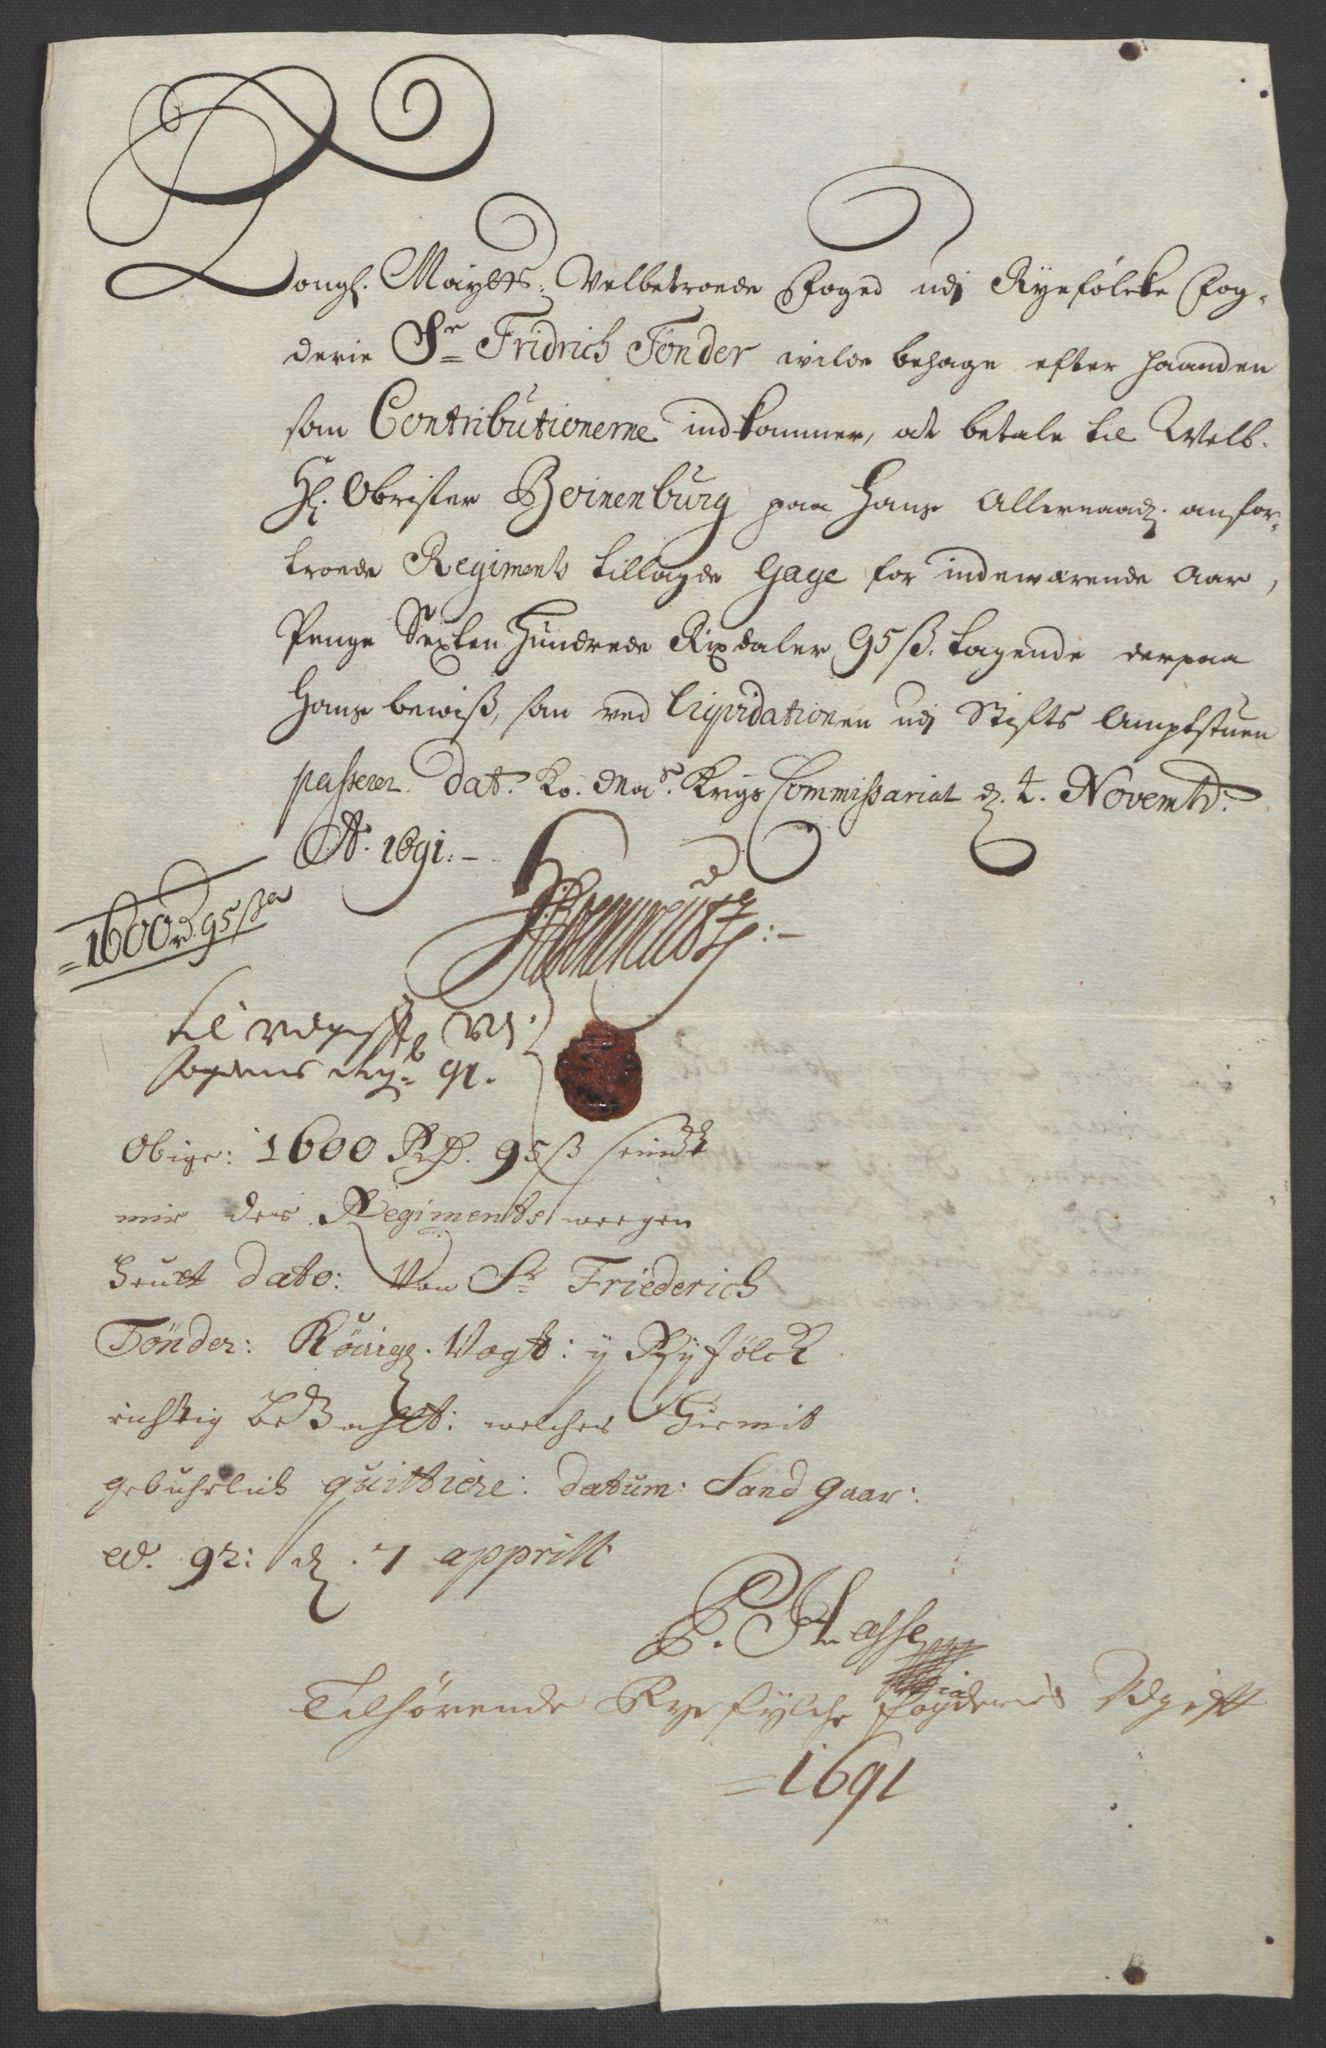 Kongl. Maytts: Velbetroede Foged udj Ryefölcke Fog-
derie Sr Fridrich Tönder wilde behage efter haanden
som Contributionerne indkommer, at betale til Welb.
Hl. Obrister Boinenburg paa Hans Allernaadl. anfor-
troede Regiments tillagde Gage for indewærende Aar,
Penge Sexten Hundrede Rixdaler 95 ß. tagende derpaa
Hans bewiß, som ved Liqvidationen udj Stifts Amptstuen
passerer. Dat. Ko. Mas. Krigs Commissariat d. 4. Novembr.
Ao. 1691.
1600 rd 95 ß
til udgifft
91.
Obige: 1600 Rd. 95 ß seindt
mir des Regiments weegen
heutt dato: Von Sr Friederich
Tönder: Königl. Vogt: y Ryfölck
richtig beZahlt: welches hiemit
gebuhrlich quittiere: datum: Sandgaar:
ao. 92: d. 7 apprill
P. Hasse
Tilhörende Ryefylche Fogderies Udgifft
1691